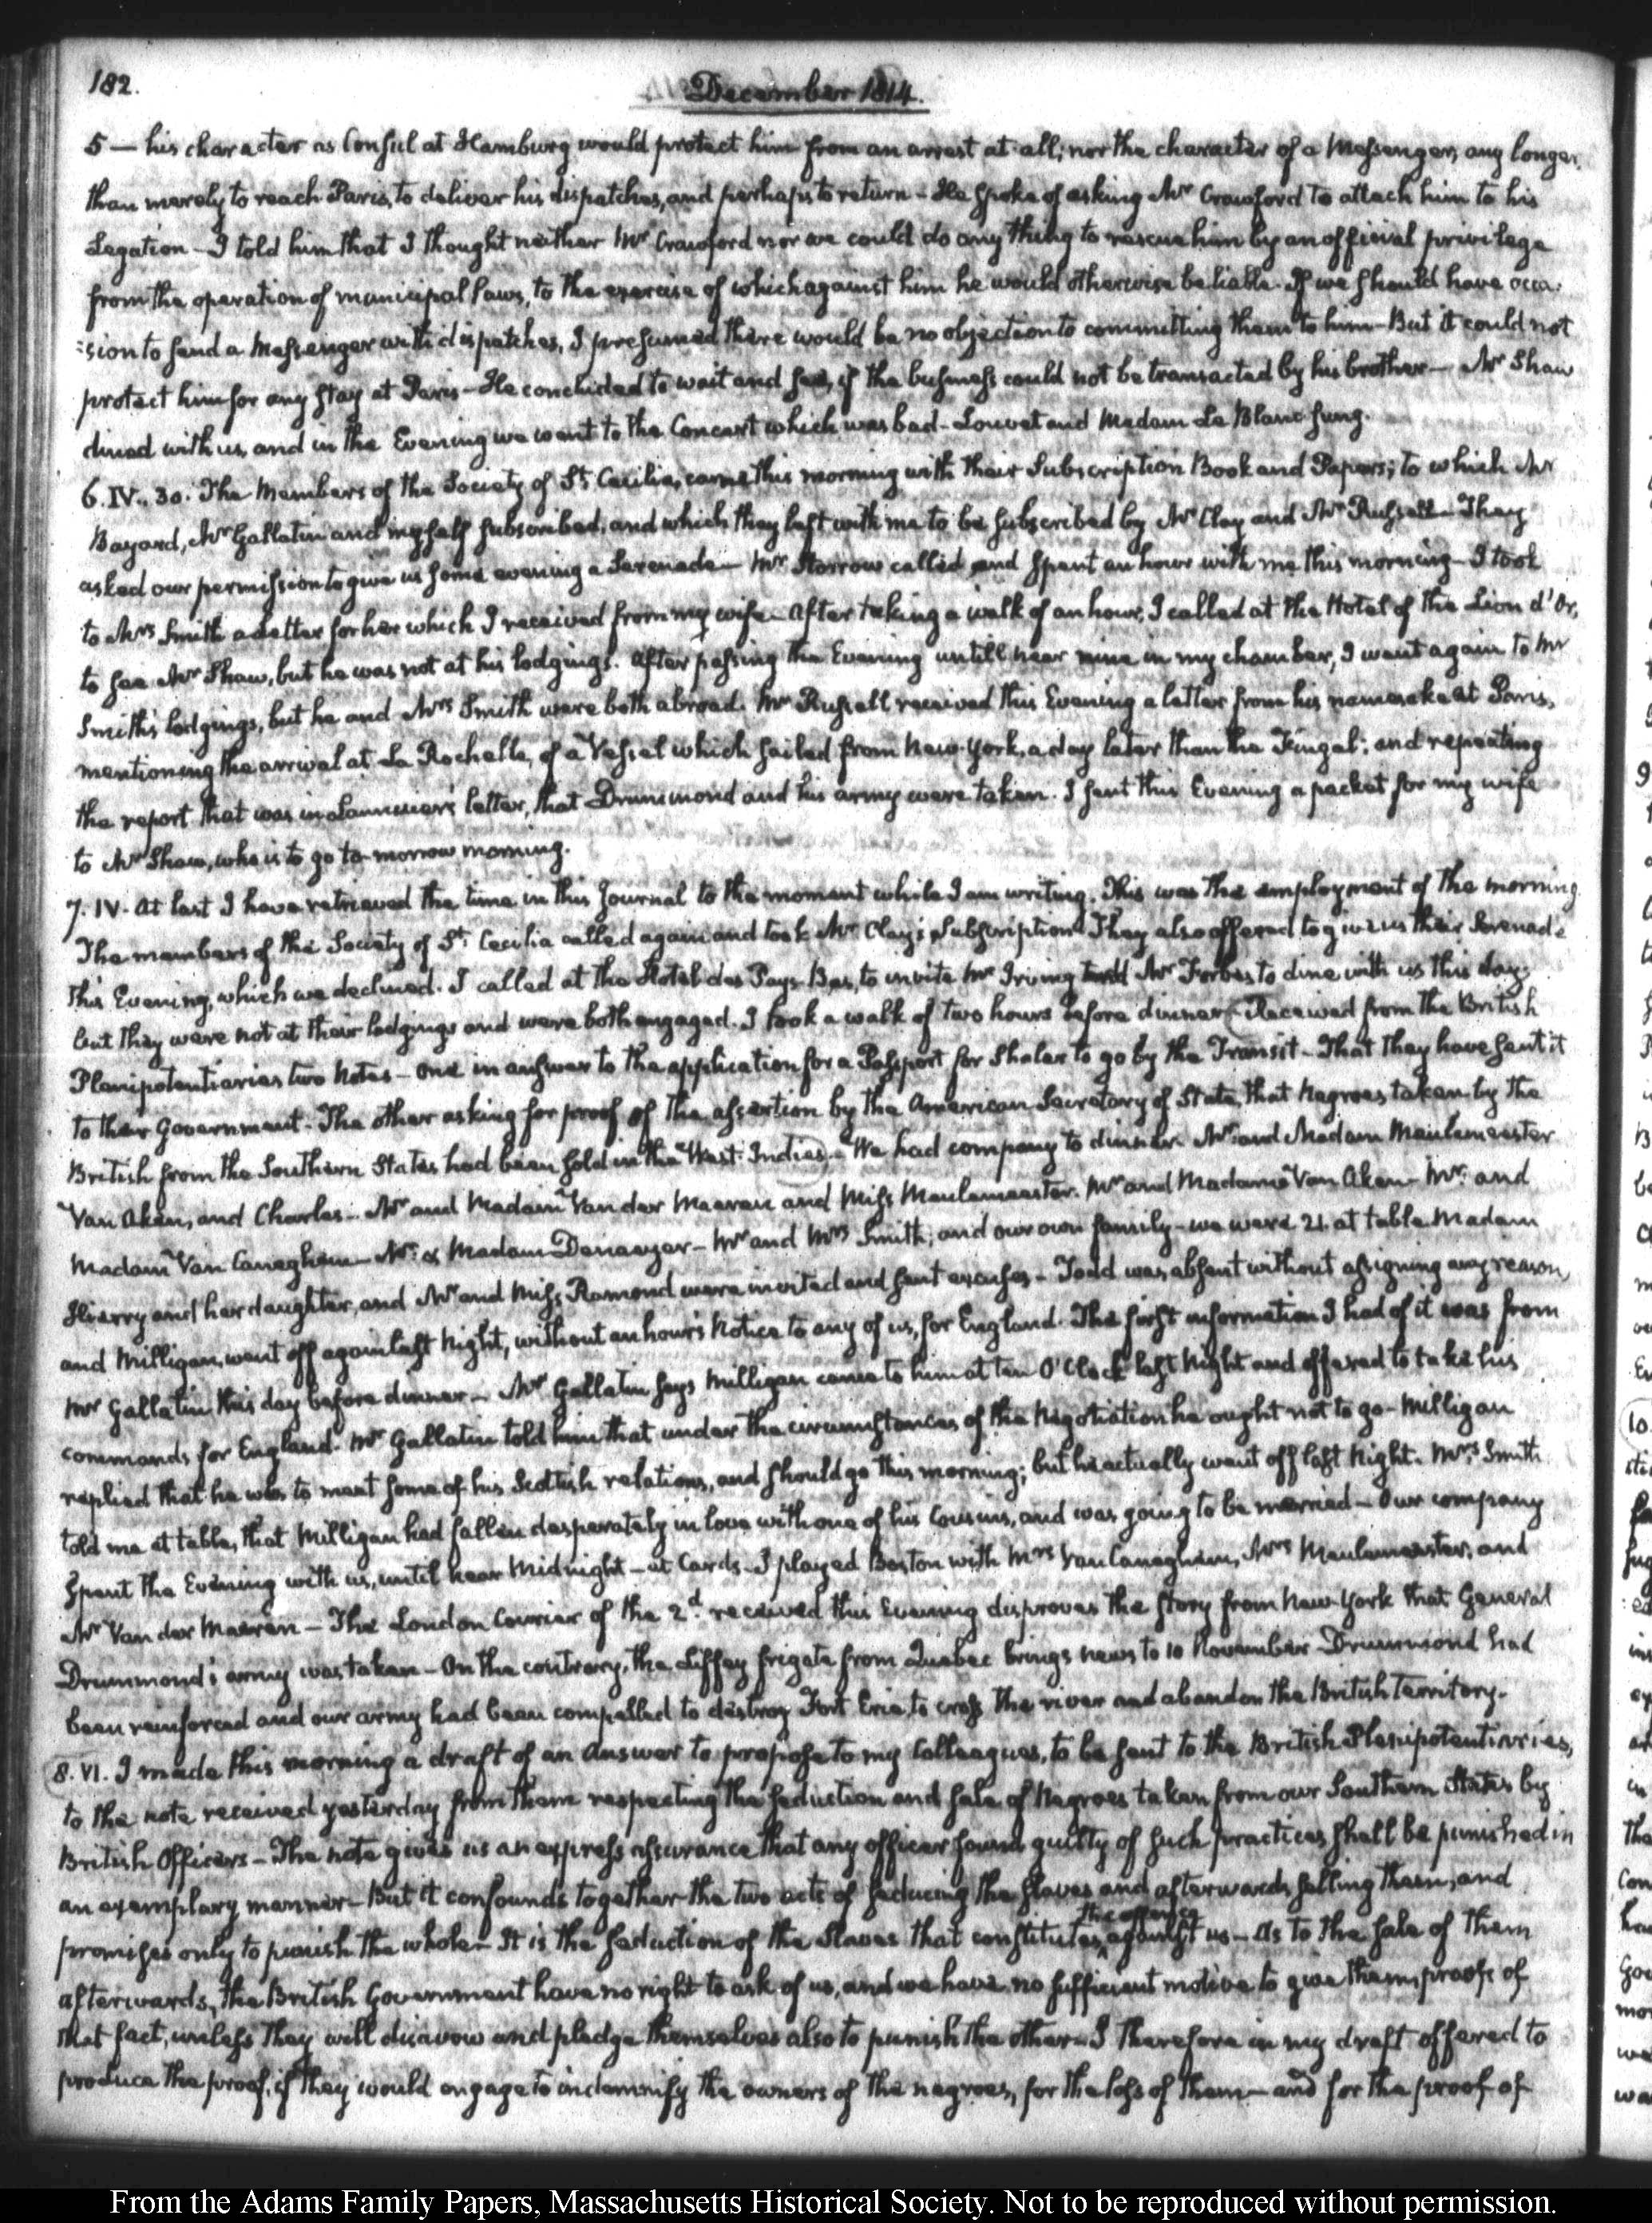 182.
December 1814.
5 — his character as Consul at Hamburg would protect him from an arrest at all; nor the character of a Messenger, any longer
than merely to reach Paris, to deliver his dispatches, and perhaps to return - He spoke of asking Mr Crawford to attach him to his
Legation - I told him that I thought neither Mr Crawford nor we could do any thing to rescue him by an official privilege
from the operation of municipal laws, to the exercise of which against him he would otherwise be liable. If we should have occa-
:sion to send a Messenger with dispatches, I presumed there would be no objection to committing them to him - But it could not
protect him for any stay at Paris - He concluded to wait and see, if the business could not be transacted by his brother — Mr Shaw
dined with us, and in the Evening we went to the Concert which was bad - Louvet and Madam Le Blanc sung.
6. IV.. 30. The Members of the Society of St. Cecilia, came this morning with their Subscription Book and Papers; to which Mr
Bayard, Mr Gallatin and myself subscribed, and which they left with me to be subscribed by Mr Clay and Mr Russell - They
asked our permission to give us some evening a Serenade — Mr Storrow called and spent an hour with me this morning - I took
to Mrs Smith a Letter for her which I received from my wife - After taking a walk of an hour, I called at the Hotel of the Lion d'Or,
to see Mr Shaw, but he was not at his lodgings. After passing the Evening untill near nine in my chamber, I went again to Mr
Smith's lodgings, but he and Mrs Smith were both abroad. Mr Russell received this Evening a letter from his namesake at Paris,
mentioning the arrival at La Rochelle, of a Vessel which sailed from New-York, a day later than the Fingal: and repeating
the report that was in letter, that Drummond and his army were taken. I sent this Evening a packet for my wife
to Mr Shaw, who is to go to-morrow morning.
7. IV. At last I have retrieved the time in this Journal to the moment while I am writing. This was the employment of the morning.
The members of the Society of St. Cecilia called again and took Mr Clay's Subscription. They also offered to give us their Serenade
this Evening, which we declined. I called at the Hotel des Pays-Bas, to invite Mr Irving and Mr Forbes to dine with us this day;
but they were not at their lodgings and were both engaged. I took a walk of two hours before dinner - Received from the British
Plenipotentiaries two Notes - One in answer to the application for a Passport for Shaler to go by the Transit - That they have sent it
to their Government - The other asking for proof of the assertion by the American Secretary of State, that Negroes taken by the
British from the Southern States had been sold in the West-Indies. - We had company to dinner. Mr and Madam Meulemeester
Van Aken, and Charles - Mr and Madam Van der Maeren and Miss Meulemeester. Mr and Madame Van Aken - Mr and
Madam Van Caneghem - Mr. & Madam Denaeyer - Mr and Mrs Smith; and our own family - we were 21. at table. Madam
Hierry and her daughter, and Mr and Miss Ramond were invited and sent excuses - Todd was absent without assigning any reason,
and Milligan, went off again last Night, without an hour's Notice to any of us, for England. The first information I had of it was from
Mr Gallatin this day before dinner - Mr Gallatin says Milligan came to him at ten O'Clock last Night and offered to take his
commands for England. Mr Gallatin told him that under the circumstances of the Negotiation he ought not to go - Milligan
replied that he was to meet some of his Scottish relations, and should go this morning; but he actually went off last Night. Mrs Smith
told me at table, that Milligan had fallen desperately in love with one of his Cousins, and was going to be married - Our company
spent the Evening with us, until near Midnight - at Cards - I played Boston with Mrs Van Caneghem, Mrs Meulemeester, and
Mr Van der Maeren - The London Courier of the 2d. received this Evening disproves the story from New-York that General
Drummond's army was taken - On the contrary, the Liffey frigate from Quebec brings news to 10 November - Drummond had
been reinforced and our army had been compelled to destroy Fort Erie, to cross the river and abandon the British Territory.
8. VI. I made this morning a draft of an Answer to propose to my Colleagues, to be sent to the British Plenipotentiaries,
to the note received yesterday from them respecting the seduction and sale of Negroes taken from our Southern States by
British Officers - The note gives us an express assurance that any officer found guilty of such practices shall be punished in
an exemplary manner - But it confounds together the two acts of seducing the slaves and afterwards selling them, and
promises only to punish the whole - It is the seduction of the Slaves that constitutes the offence against us - As to the sale of them
afterwards, the British Government have no right to ask of us, and we have no sufficient motive to give them, proofs of
that fact, unless they will disavow and pledge themselves also to punish the other - I therefore in my draft offered to
produce the proof, if they would engage to indemnify the owners of the negroes, for the loss of them - and for the proof of
From the Adams Family Papers, Massachusetts Historical Society. Not to be reproduced without permission.